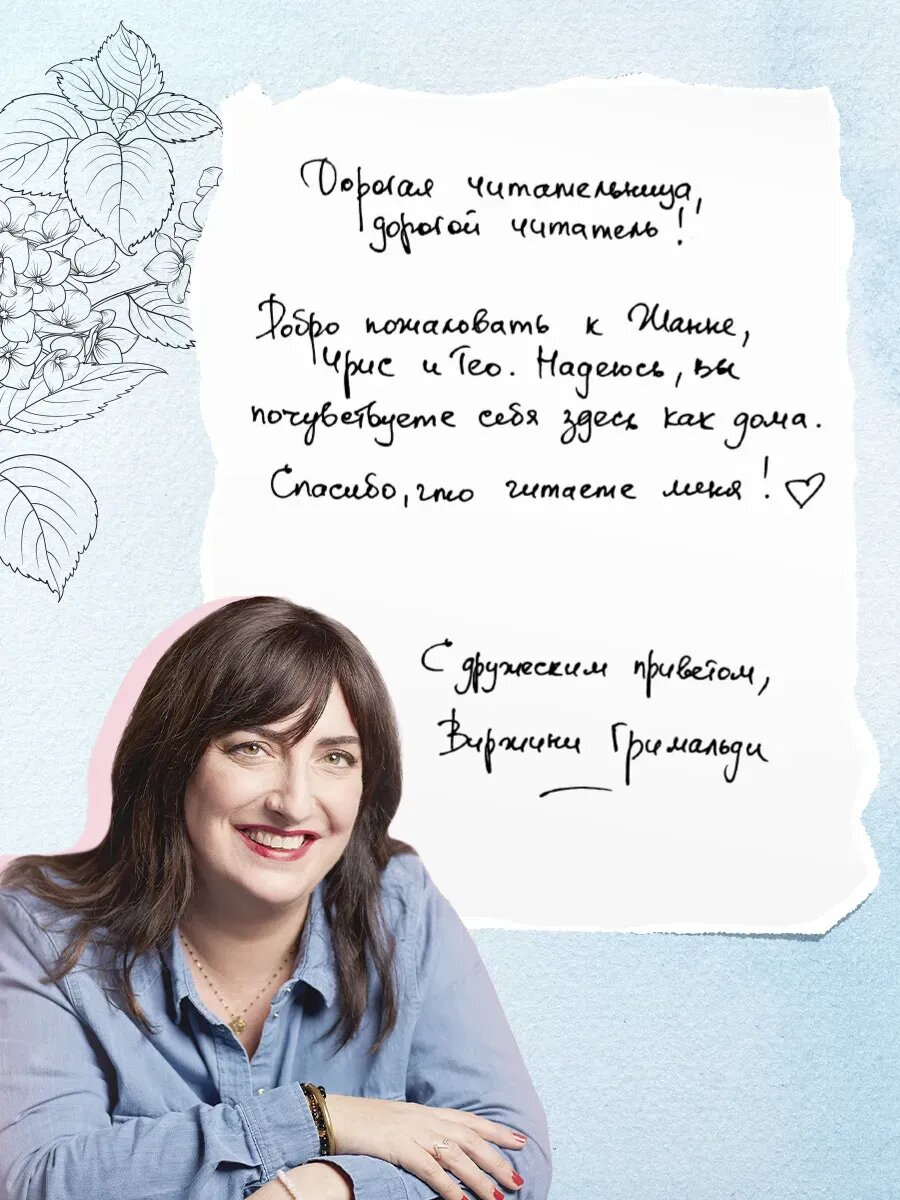 Дорогая читательница,
дорогой читатель!
Добро пожаловать к Жанне,
Ирис и Тео. Надеюсь, вы
почувствуете себя здесь как дома.
Спасибо, что читаете меня! ♡
С дружеским приветом,
Виржини Гримальди